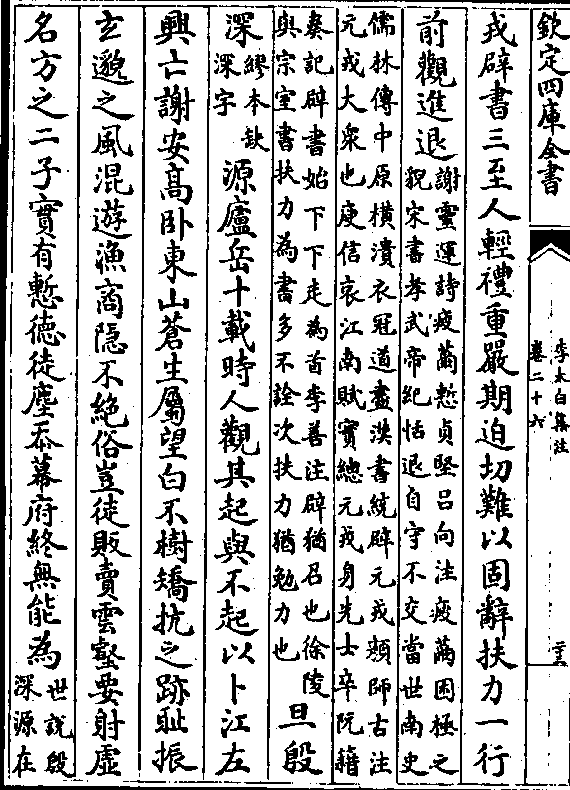 欽定四庫全書
李太白集注
卷二十六
戎辟書三至人輕禮重嚴期迫切難以固辭扶力一行
前觀進退謝靈運詩疲薾慙貞堅呂向注疲薾困極之
貌宋書孝武帝紀恬退自守不交當世南史
儒林傳中原橫潰衣冠道盡漢書統辟元戎顏師古注
元戎大衆也庾信哀江南賦實總元戎身先士卒阮籍
奏記辟書始下下走為首李善注辟猶召也徐陵
與宗室書扶力為書多不詮次扶力猶勉力也
旦殷
深繆本缺
深字
源廬岳十載時人觀其起與不起以卜江左
興亡謝安高卧東山蒼生屬望白不樹矯抗之跡耻振
玄邈之風混遊漁商隠不絶俗豈徒販賣雲壑要射虚
名方之二子實有慙德徒塵忝幕府終無能為世說殷
深源在